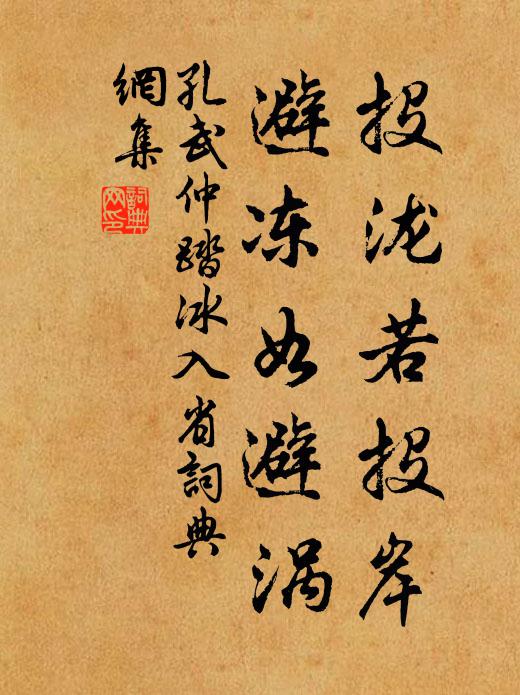 投泷若投岸
避冻如避涡
孔武仲踏冰入省詞典
網集
詞典
网印